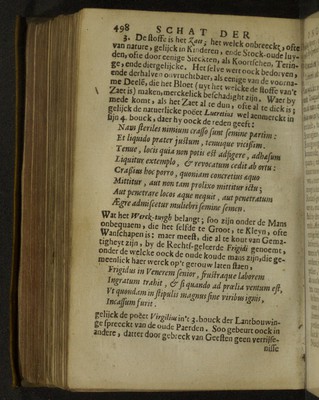 498 SCHAT DER
3. De stoffe is het Zaet; het welck onbreeckt, ofte
van nature, gelijck in Kinderen, ende Stock-oude luy-
den, ofte door eenige Sieckten, als Koortschen, Terin-
ge, ende diergelijcke. Het selve wert oock bedorven,
ende derhalven onvruchtbaer, als eenige van de voorna-
me Deelē, die het Bloet (uyt het welcke de stoffe van't
Zaet is) maken, merckelijck beschadight zijn. Waer by
mede komt, als het Zaet al te dun, ofte al te dick is;
gelijck de natuerlicke poëet Lucretius wel aenmerckt in
sijn 4. bouck, daer hy oock de reden geeft:
Nam steriles nimium crasso sunt semine partim:
Et liquido præter justum, tenuique vicissim.
Tenue, locis quia non potis est adfigere, adhæsum
Liquitur extemplo, & revocatum cedit ab ortu:
Crassius hoc porro, quoniam concretius aquo
Mittitur, aut non tam prolixo mittitur ictu;
Aut penetrare locos æque nequit, aut penetratum
Ægre admiscetur muliebri semine semen.
Wat het Werck-tuygh belangt; soo zijn onder de Mans
onbequaem, die het selfde te Groot, te Kleyn, ofte
Wanschapen is: maer meest, die al te kout van Gema-
tigheyt zijn, by de Rechts-geleerde Frigidi genoemt,
onder de welcke oock de oude koude mans zijn, die ge-
meenlick haer werck op't gerouw laten staen,
Frigidus in Venerem senior, frustraque laborem
Ingratum trahit, & si quando ad prælia ventum est,
Vt quondam in stipulis magnus sine viribus ignis,
Incassum furit.
gelijck de poëet Virgilius in't 3. bouck der Lantbouwin-
ge spreeckt van de oude Paerden. Soo gebeurt oock in
andere, datter door gebreck van Geesten geen verrijse-
nisse